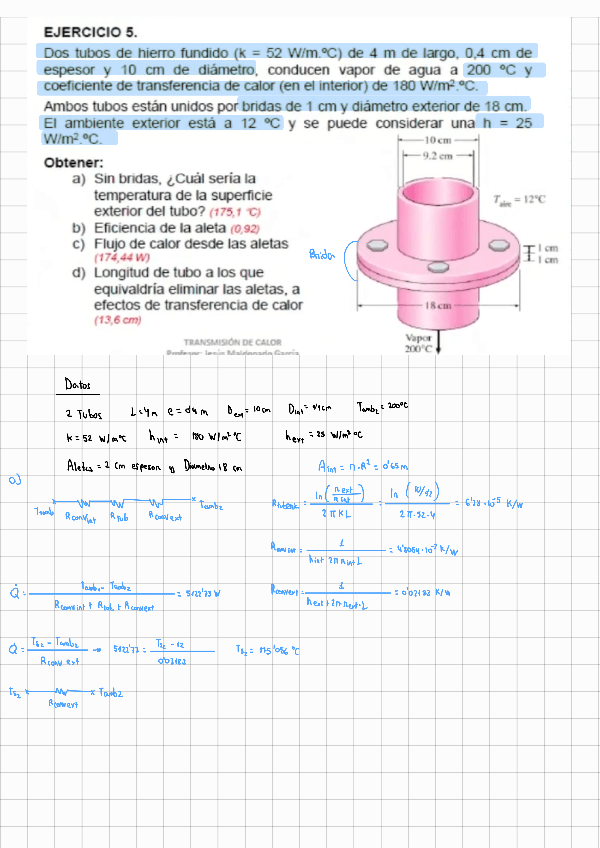 EJERCICIO 5.
Dos tubos de hierro fundido (k = 52 W/m.ºC) de 4 m de largo, 0,4 cm de
espesor y 10 cm de diámetro, conducen vapor de agua a 200 ºC y
coeficiente de transferencia de calor (en el interior) de 180 W/m².ºC.
Ambos tubos están unidos por bridas de 1 cm y diámetro exterior de 18 cm.
El ambiente exterior está a 12 ºC y se puede considerar una h = 25
W/m².ºC.
Obtener:
a) Sin bridas, ¿Cuál sería la
temperatura de la superficie
exterior del tubo? (175,1 ºC)
b) Eficiencia de la aleta (0,92)
c) Flujo de calor desde las aletas
(174,44 W)
d) Longitud de tubo a los que
equivaldría eliminar las aletas, a
efectos de transferencia de calor
(13,6 cm)
10 cm
9.2 cm
T aire = 12°C
Brida
1 cm
1 cm
18 cm
Vapor
200°C
TRANSMISIÓN DE CALOR
Profesor: Jesús Maldonado García
Datos
2 Tubos L=4m Dext=10cm Tamb2=200ºC
k=52 W/mºC hint= 180 W/m²ºC hext=25 W/m²ºC
Aletas=2 cm espesor y Diametro 18 cm
a)
Rconvint Rtub Rconvext Tamb2
2πKL 2π·52·4
Rconvint = 1 / hint·2π·rint·L
Rconvext = 1 / hext·2π·rext·L = 0'03183 K/W
Q̇ = / Rconvint + Rtub + Rconvext = 5122'73 W
Q̇ = Ts2 - Tamb2 / Rconvext → 5122'73 = Ts2 - 12 / 0'03183 Ts2 = 175'056 ºC
Ts2 Tamb2
Rconvext